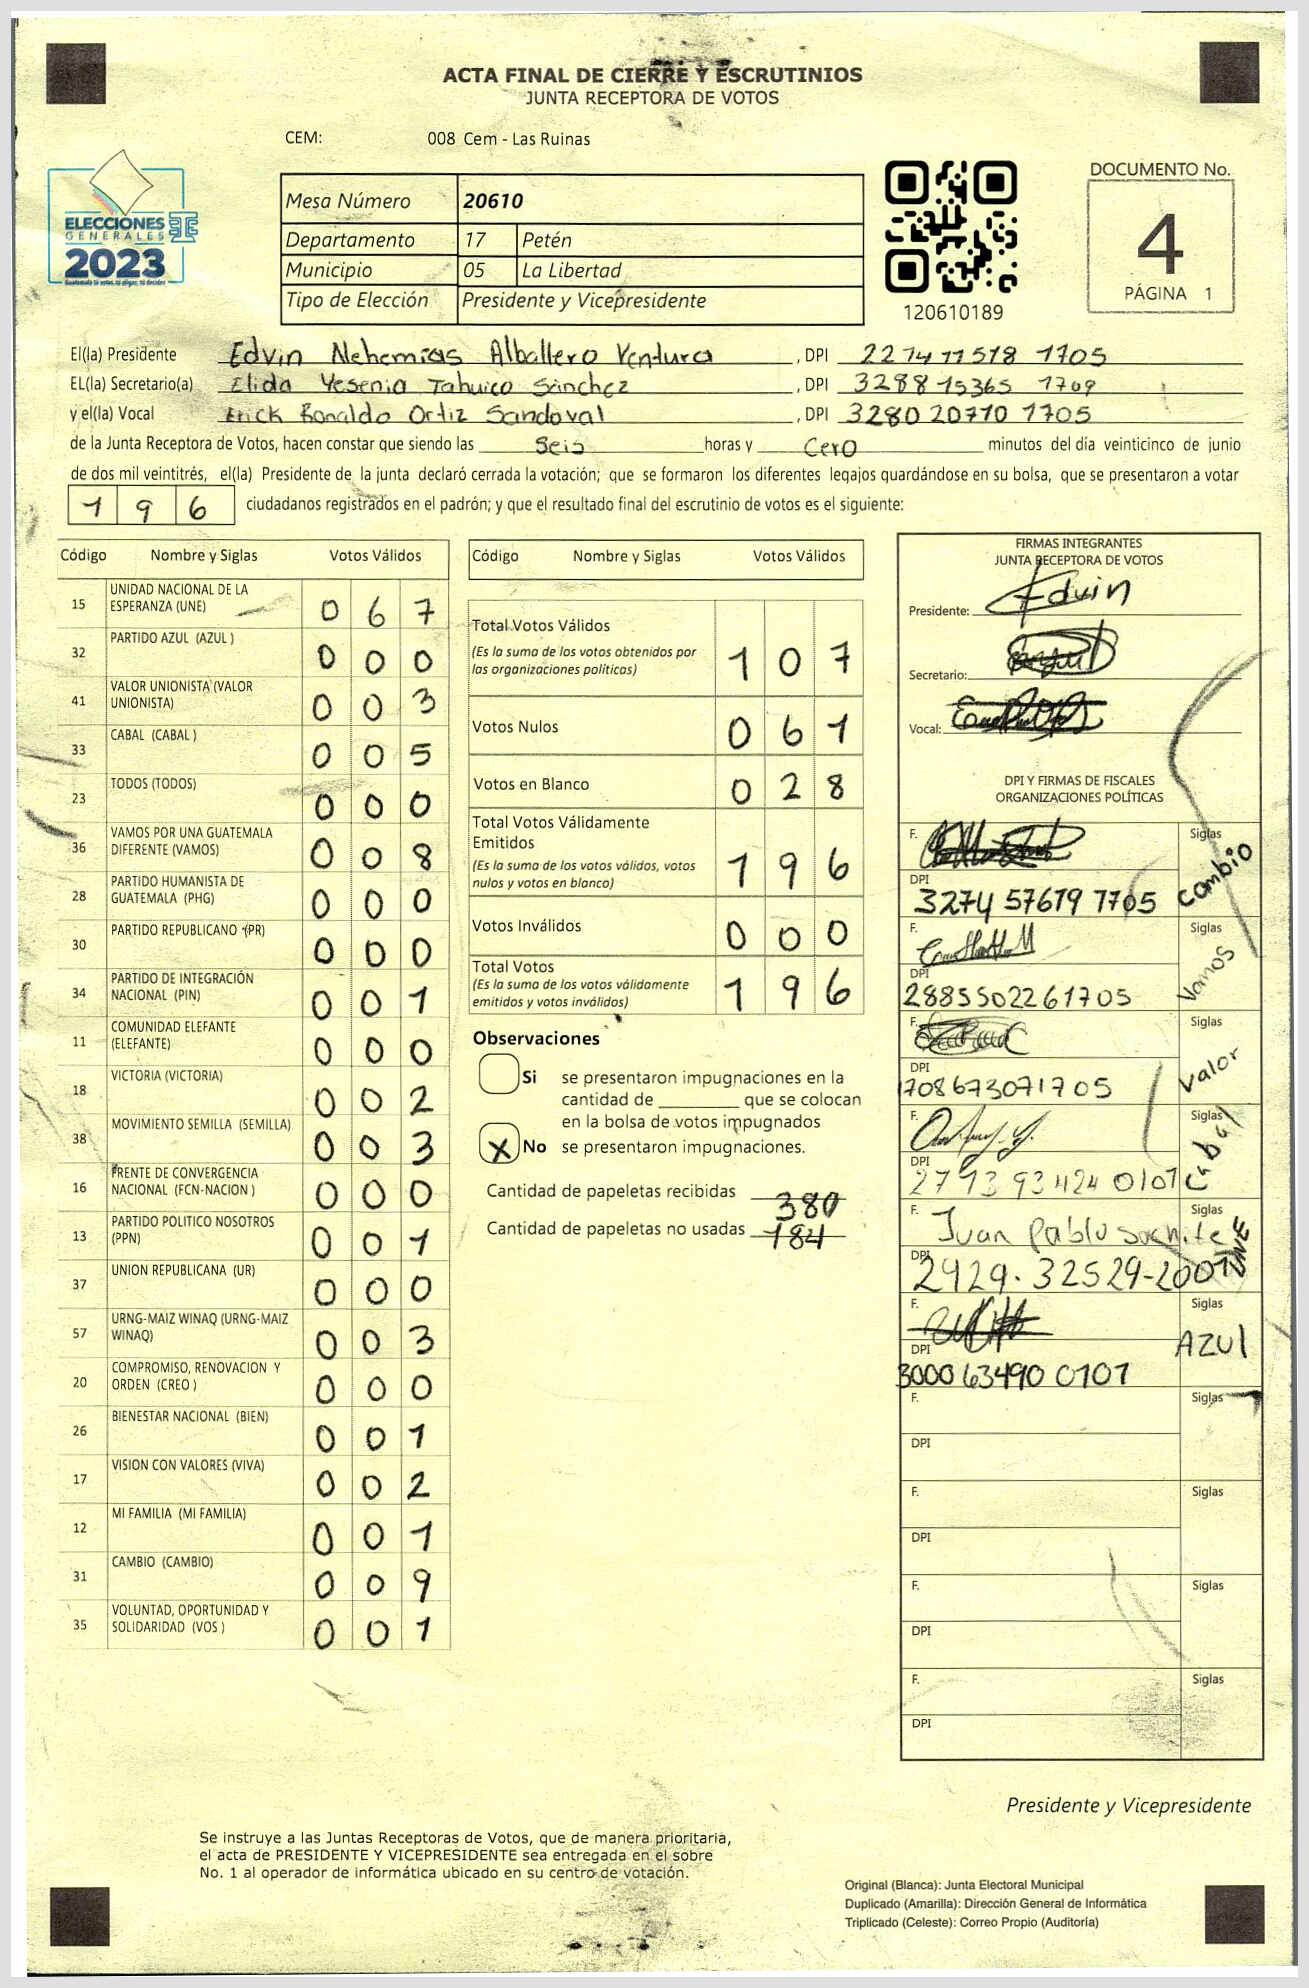 ACTA FINAL DE CIERRE Y ESCRUTINIOS
JUNTA RECEPTORA DE VOTOS
CEM: 008 Cem - Las Ruinas
ELECCIONES
GENERALES
2023
Mesa Número 20610
Departamento 17 Petén
Municipio 05 La Libertad
Tipo de Elección Presidente y Vicepresidente
120610189
DOCUMENTO No.
4
PÁGINA 1
El(la) Presidente Edvin Nehemias Alballero Ventura, DPI 2274 11518 1705
EL(la) Secretario(a) Elida Yesenia Tahuico Sánchez, DPI 3288 15365 1709
y el(la) Vocal Erick Ronaldo Ortiz Sandoval, DPI 3280 20710 1705
de la Junta Receptora de Votos, hacen constar que siendo las Seis horas y Cero minutos del día veinticinco de junio
de dos mil veintitrés, el(la) Presidente de la junta declaró cerrada la votación; que se formaron los diferentes legajos quardándose en su bolsa, que se presentaron a votar
1 9 6 ciudadanos registrados en el padrón; y que el resultado final del escrutinio de votos es el siguiente:
Código Nombre y Siglas Votos Válidos
15 UNIDAD NACIONAL DE LA ESPERANZA (UNE) 0 6 7
32 PARTIDO AZUL (AZUL ) 0 0 0
41 VALOR UNIONISTA (VALOR UNIONISTA) 0 0 3
33 CABAL (CABAL ) 0 0 5
23 TODOS (TODOS) 0 0 0
36 VAMOS POR UNA GUATEMALA DIFERENTE (VAMOS) 0 0 8
28 PARTIDO HUMANISTA DE GUATEMALA (PHG) 0 0 0
30 PARTIDO REPUBLICANO (PR) 0 0 0
34 PARTIDO DE INTEGRACIÓN NACIONAL (PIN) 0 0 1
11 COMUNIDAD ELEFANTE (ELEFANTE) 0 0 0
18 VICTORIA (VICTORIA) 0 0 2
38 MOVIMIENTO SEMILLA (SEMILLA) 0 0 3
16 FRENTE DE CONVERGENCIA NACIONAL (FCN-NACION ) 0 0 0
13 PARTIDO POLITICO NOSOTROS (PPN) 0 0 1
37 UNION REPUBLICANA (UR) 0 0 0
57 URNG-MAIZ WINAQ (URNG-MAIZ WINAQ) 0 0 3
20 COMPROMISO, RENOVACION Y ORDEN (CREO ) 0 0 0
26 BIENESTAR NACIONAL (BIEN) 0 0 1
17 VISION CON VALORES (VIVA) 0 0 2
12 MI FAMILIA (MI FAMILIA) 0 0 1
31 CAMBIO (CAMBIO) 0 0 9
35 VOLUNTAD, OPORTUNIDAD Y SOLIDARIDAD (VOS ) 0 0 1
Código Nombre y Siglas Votos Válidos
Total Votos Válidos 1 0 7
(Es la suma de los votos obtenidos por
las organizaciones políticas)
Votos Nulos 0 6 1
Votos en Blanco 0 2 8
Total Votos Válidamente
Emitidos 1 9 6
(Es la suma de los votos válidos, votos
nulos y votos en blanco)
Votos Inválidos 0 0 0
Total Votos 1 9 6
(Es la suma de los votos válidamente
emitidos y votos inválidos)
Observaciones
Si se presentaron impugnaciones en la
cantidad de ________ que se colocan
en la bolsa de votos impugnados
X No se presentaron impugnaciones.
Cantidad de papeletas recibidas 380
Cantidad de papeletas no usadas 184
FIRMAS INTEGRANTES
JUNTA RECEPTORA DE VOTOS
Presidente: Edvin
Secretario:
Vocal:
DPI Y FIRMAS DE FISCALES
ORGANIZACIONES POLÍTICAS
F. Siglas Cambio
DPI 3274 57619 1705
F. Siglas Vamos
DPI 2885502261705
F. Siglas Valor
DPI 1708673071705
F. Siglas Cabal
DPI 2713 93424 0101
F. Juan Pablo Siglas UNE
DPI 2929. 32529-2001
F. Siglas AZUL
DPI 3000 63490 0101
F. Siglas
DPI
F. Siglas
DPI
F. Siglas
DPI
F. Siglas
DPI
Presidente y Vicepresidente
Se instruye a las Juntas Receptoras de Votos, que de manera prioritaria,
el acta de PRESIDENTE Y VICEPRESIDENTE sea entregada en el sobre
No. 1 al operador de informática ubicado en su centro de votación.
Original (Blanca): Junta Electoral Municipal
Duplicado (Amarilla): Dirección General de Informática
Triplicado (Celeste): Correo Propio (Auditoría)